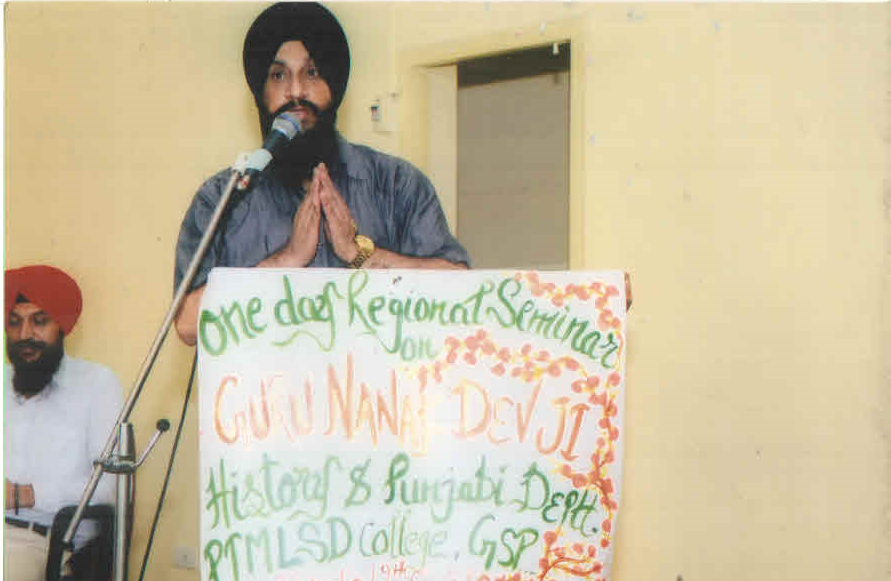 One day Regional Seminar
on
GURU NANAK DEV JI
History & Punjabi Deptt.
PTMLSD College, GSP